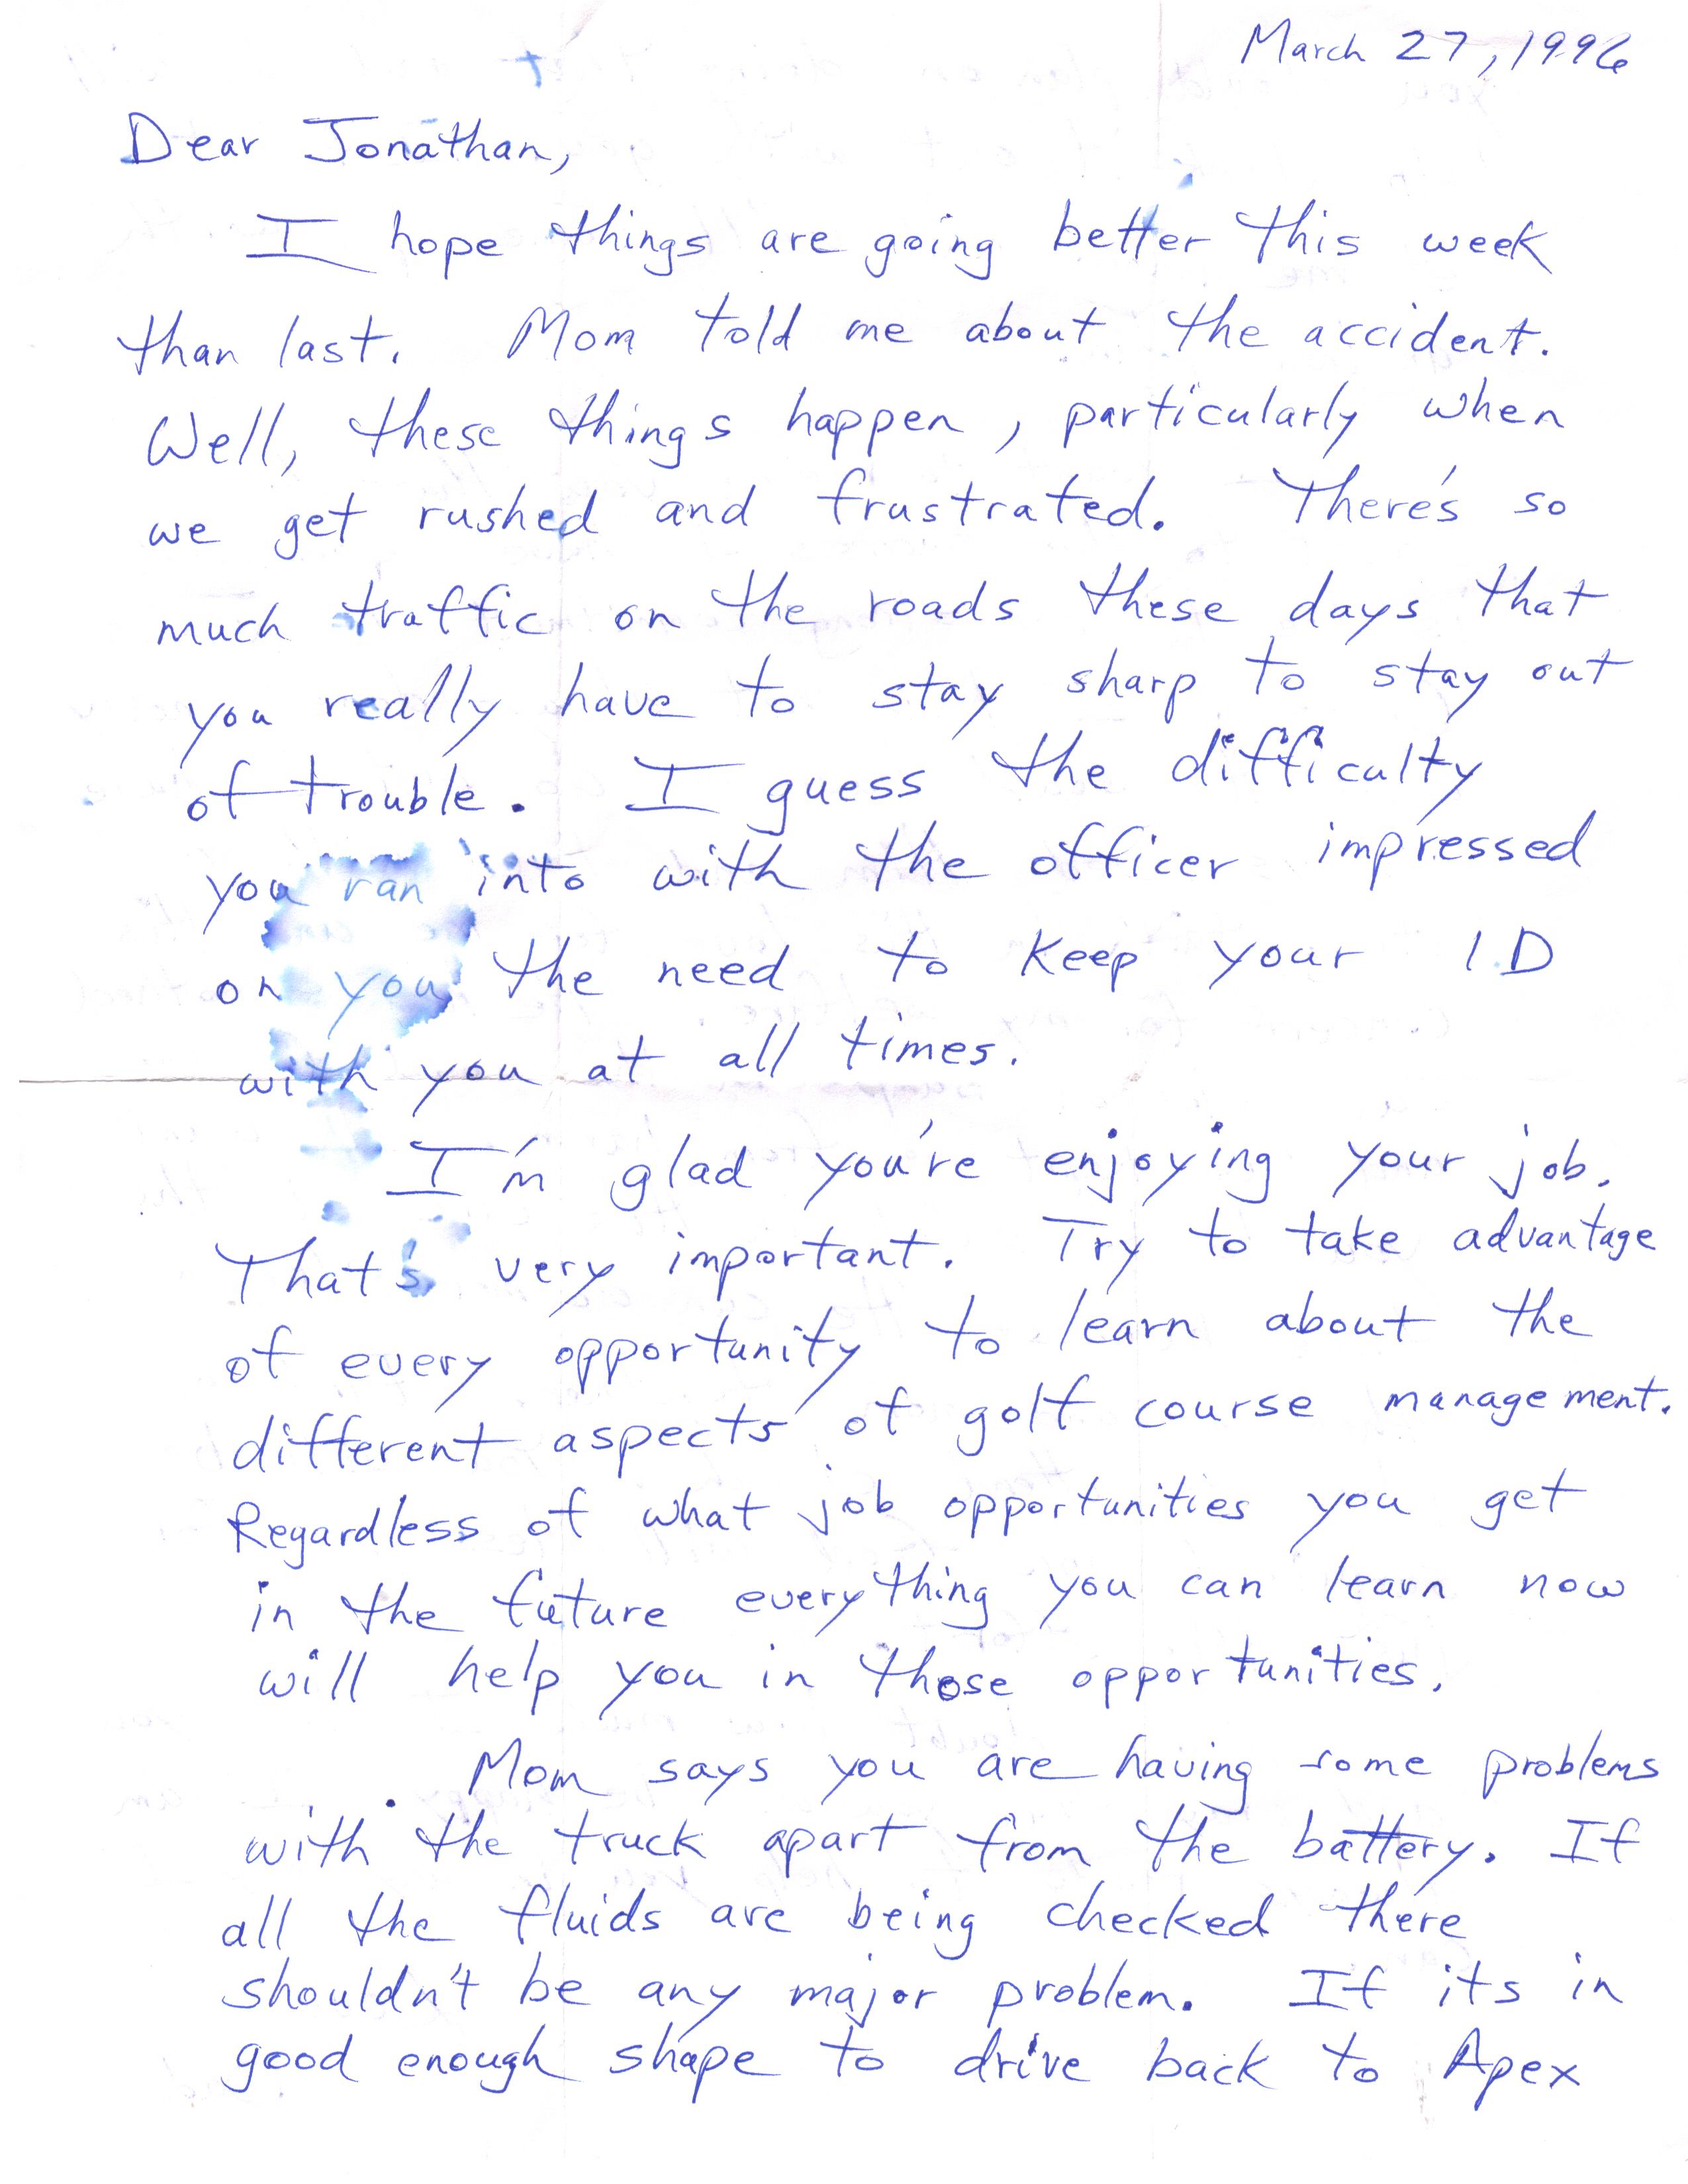 March 27, 1996
Dear Jonathan,
I hope things are going better this week
than last. Mom told me about the accident.
Well, these things happen, particularly when
we get rushed and frustrated. There's so
much traffic on the roads these days that
you really have to stay sharp to stay out
of trouble. I guess the difficulty
you ran into with the officer impressed
on you the need to keep your I.D
with you at all times.
I'm glad you're enjoying your job.
That's very important. Try to take advantage
of every opportunity to learn about the
different aspects of golf course management.
Regardless of what job opportunities you get
in the future everything you can learn now
will help you in those opportunities.
Mom says you are having some problems
with the truck apart from the battery. If
all the fluids are being checked there
shouldn't be any major problem. If its in
good enough shape to drive back to Apex